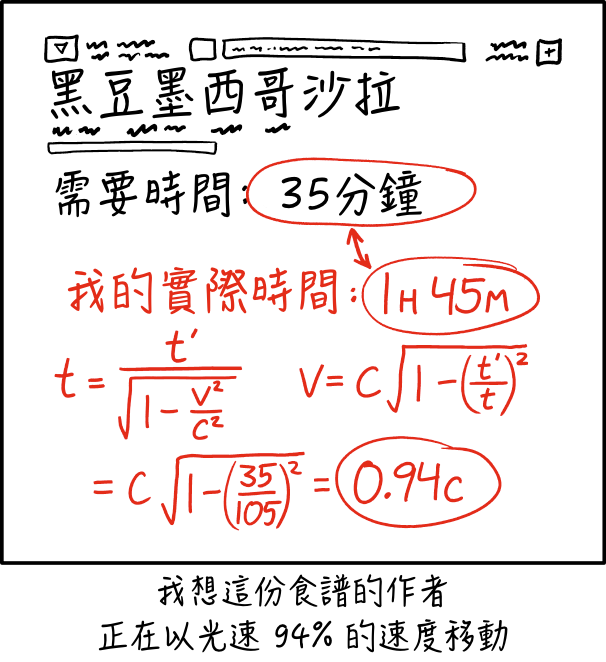 黑豆墨西哥沙拉
需要時間: 35分鐘
我的實際時間: 1H 45M
t = t′ / √(1 − v²/c²)  V = C√(1 − (t′/t)²)
= C√(1 − (35/105)²) = 0.94c
我想這份食譜的作者
正在以光速 94% 的速度移動